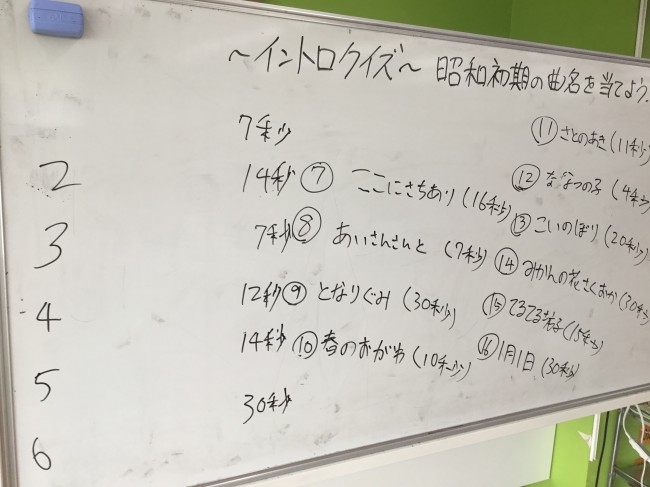 ～イントロクイズ～ 昭和初期の曲名を当てよう.
7秒
2 14秒
3 7秒
4 12秒
5 14秒
6 30秒
⑦ ここにさちあり (16秒)
⑧ あいさんさんと (7秒)
⑨ となりぐみ (30秒)
⑩ 春のおがわ (10秒)
⑪ さとのあき (11秒)
⑫ ななつの子 (4秒)
⑬ こいのぼり (20秒)
⑭ みかんの花さくおか (30秒)
⑮ てるてる坊子 (15秒)
⑯ 1月1日 (30秒)